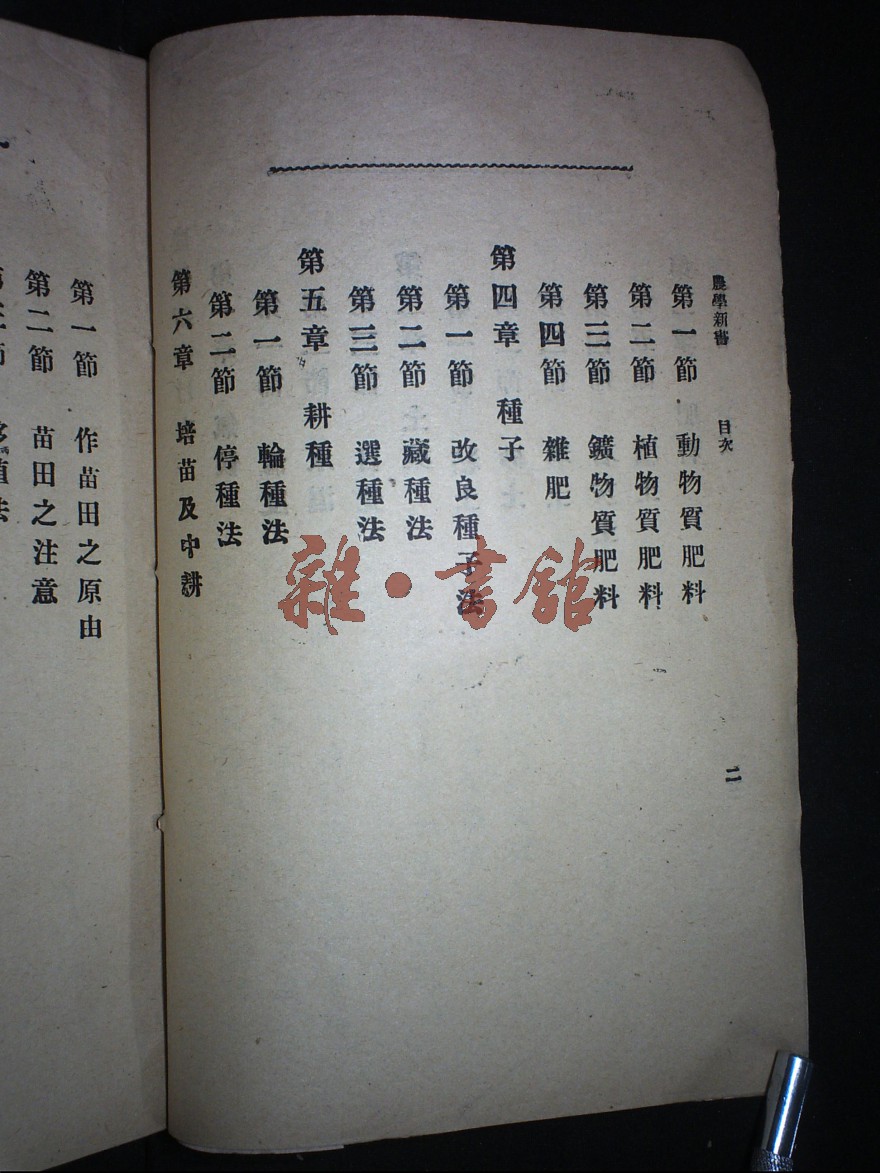 農學新書 目次 二
第一節 動物質肥料
第二節 植物質肥料
第三節 鑛物質肥料
第四節 雜肥
第四章 種子
第一節 改良種子法
第二節 藏種法
第三節 選種法
第五章 耕種
第一節 輪種法
第二節 停種法
第六章 培苗及中耕
第一節 作苗田之原由
第二節 苗田之注意
雜·書館